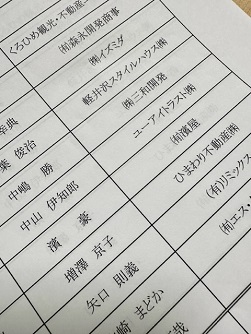 くろひめ観光・不動産
㈲森永開発商事
㈱イズミダ
軽井沢スタイルハウス㈱
㈱三和開発
ユーアイトラスト㈱
㈲濱屋
ひまわり不動産㈱
(有)リミックス
㈲エス・
幸典
葉 俊治
中嶋 勝
中山 伊知郎
濱 豪
増澤 京子
矢口 則義
崎 まどか